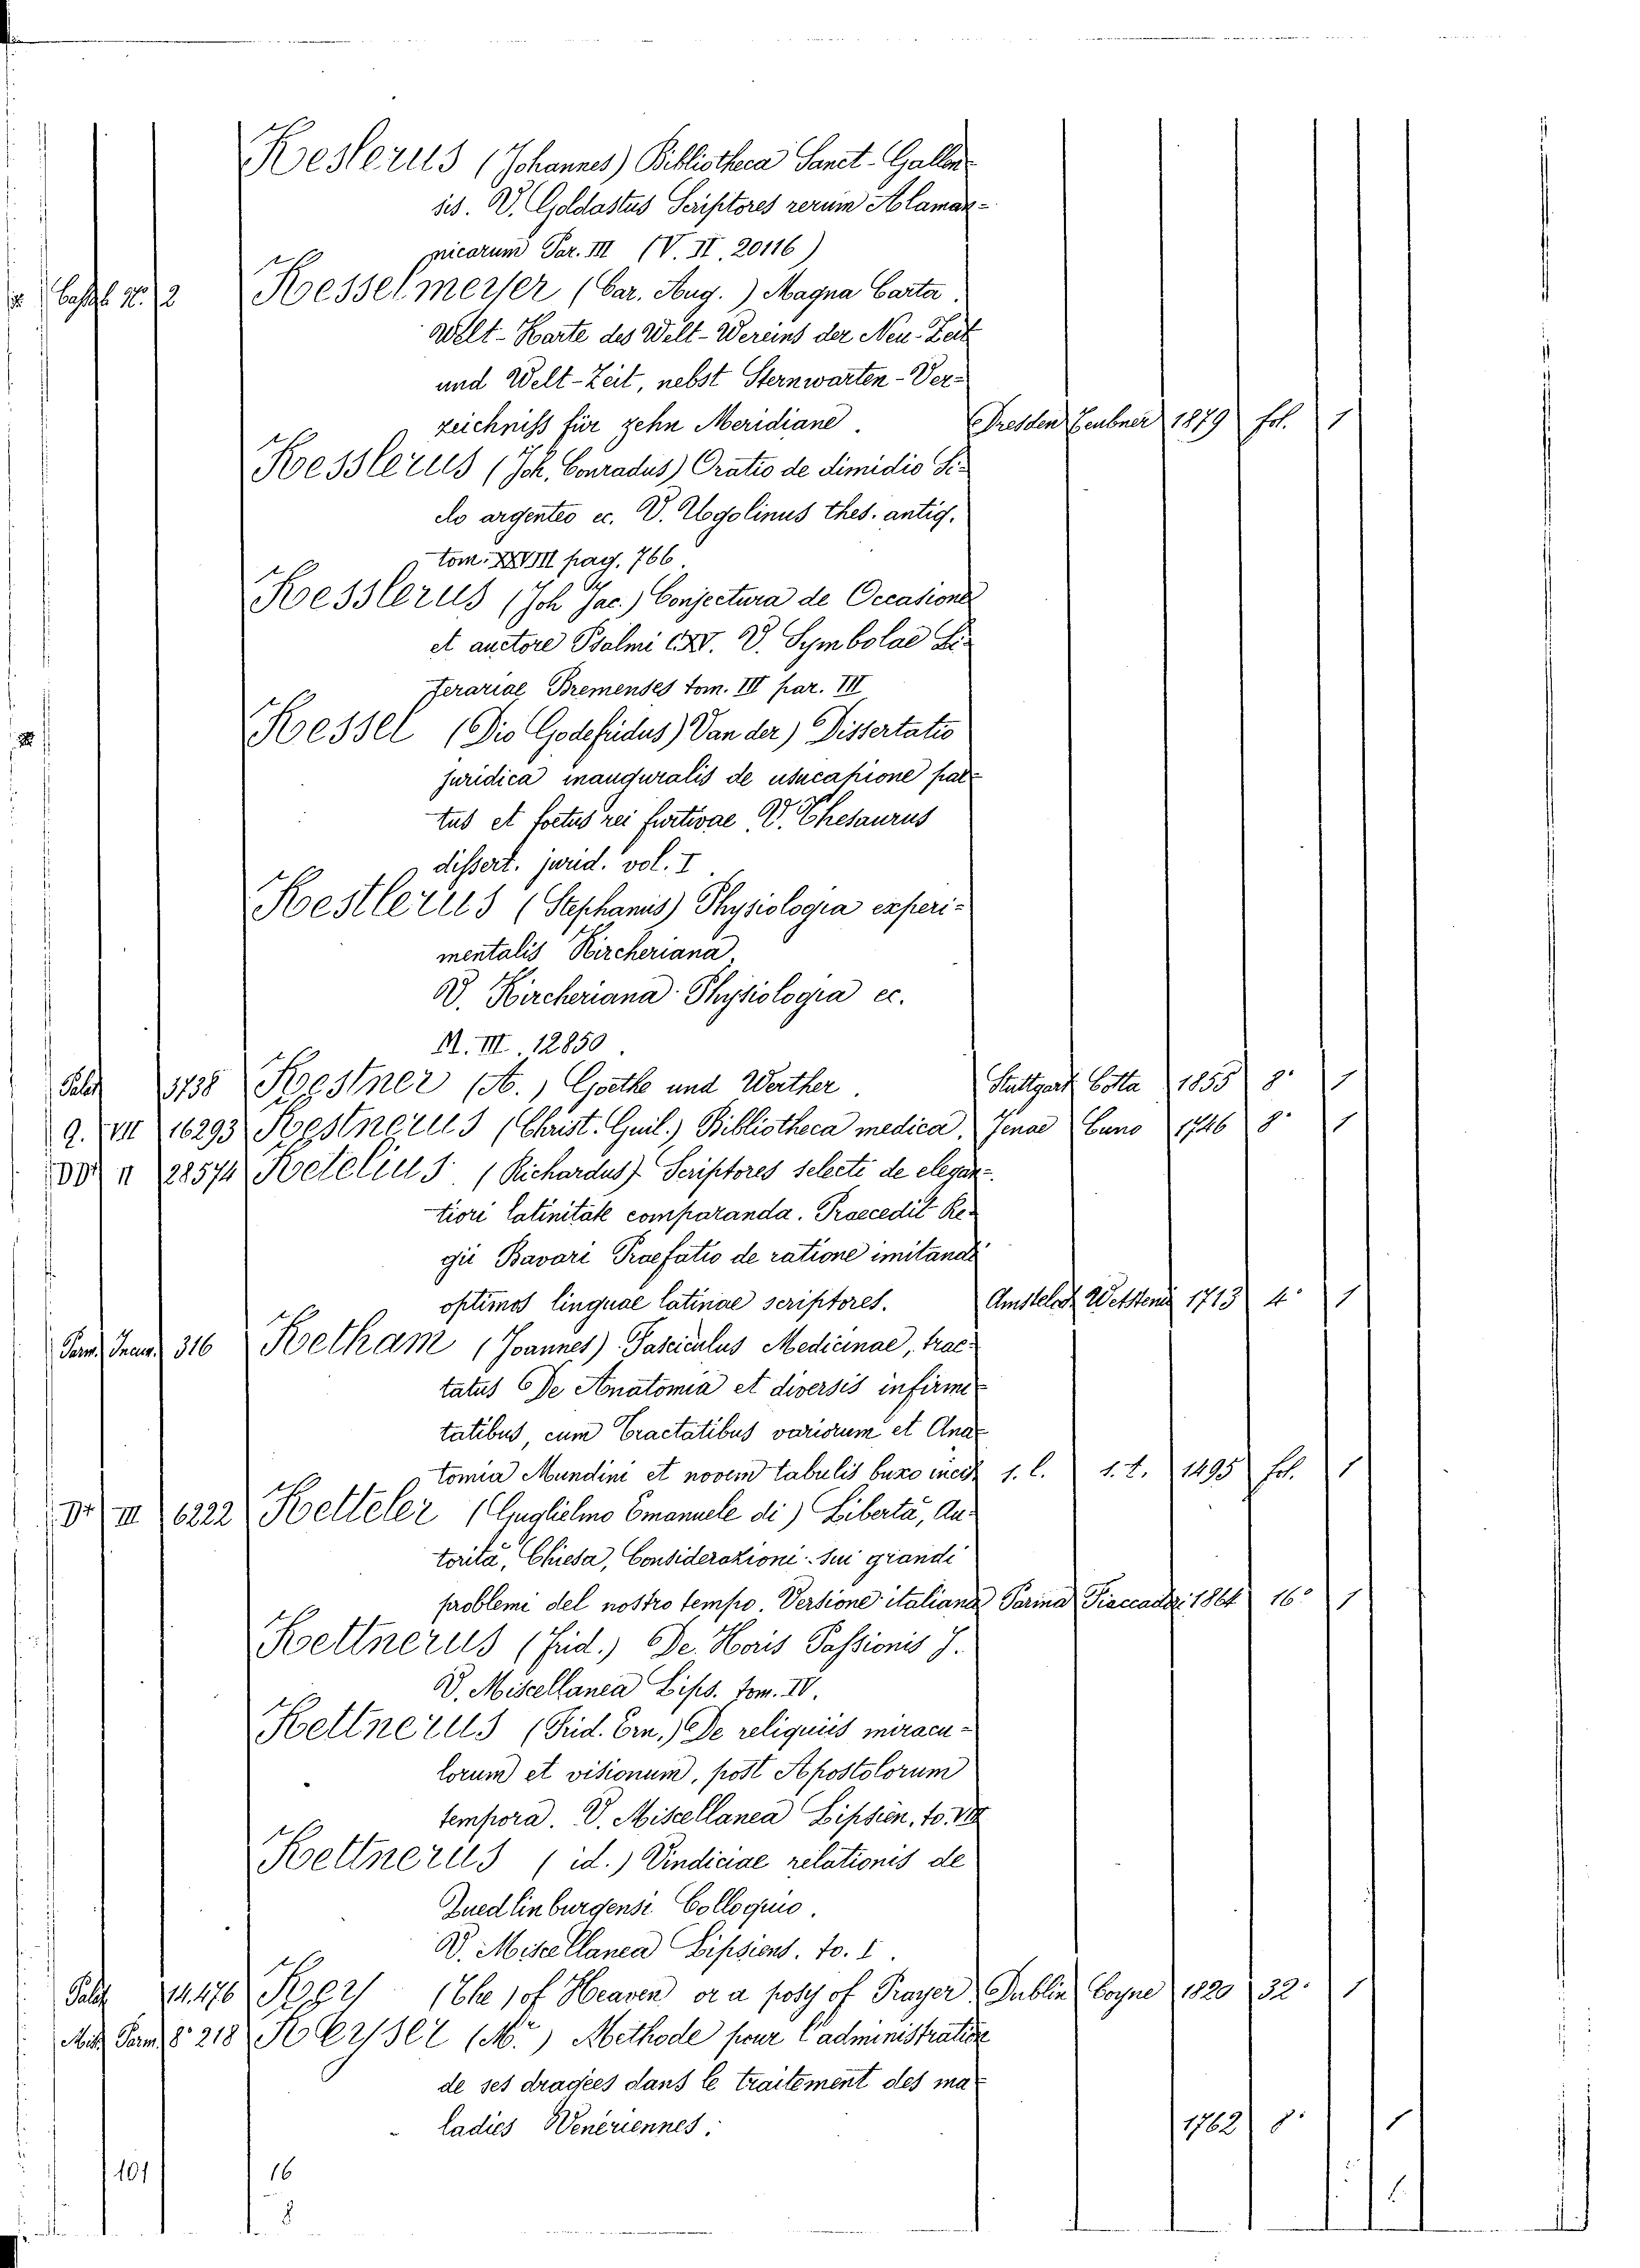 Keslerus (Johannes) Bibliotheca Sanct-Gallen-
sis. V. Goldastus Scriptores rerum Alaman-
nicarum Par. III (V. II. 20116)
2 Kesselmeyer (Car. Aug.) Magna Carta.
Welt-Karte des Welt-Vereins der Neu-Zeit
und Welt-Zeit, nebst Sternwarten-Ver-
zeichniss für zehn Meridiane. Dresden Teubner 1879 fol. 1
Kesslerus (Joh. Conradus) Oratio de dimidio Si-
clo argenteo ec. V. Ugolinus thes. antiq.
tom. XXVIII pag. 766.
Kesslerus (Joh Jac.) Conjectura de Occasione
et auctore Psalmi CXV. V. Symbolae Li-
terariae Bremenses tom. III par. III
Kessel (Dio Godefridus) Van der) Dissertatio
juridica inauguralis de usucapione par-
tus et foetus rei furtivae. V. Thesaurus
dissert. jurid. vol. I.
Kestlerus (Stephanus) Physiologia experi-
mentalis Kircheriana.
V. Kircheriana Physiologia ec.
M. III. 12850.
Palat 3738 Kestner (A.) Goethe und Werther. Stuttgart Cotta 1855 8° 1
Q. VII 16293 Kestnerus (Christ. Guil.) Bibliotheca medica. Jenae Cuno 1746 8° 1
DD II 28574 Ketelius (Richardus) Scriptores selecti de elegan-
tiori latinitate comparanda. Praecedit Re-
gii Bavari Praefatio de ratione imitandi
optimos linguae latinae scriptores. Amstelod. Wetstenii 1713 4° 1
Parm. Incun. 316 Ketham (Joannes) Fasciculus Medicinae, trac-
tatus De Anatomia et diversis infirmi-
tatibus, cum Tractatibus variorum et Ana-
tomia Mundini et novem tabulis buxo incis. s. l. s. t. 1495 fol. 1
Dr III 6222 Ketteler (Guglielmo Emanuele di) Libertà, Au-
torità, Chiesa, Considerazioni sui grandi
problemi del nostro tempo. Versione italiana Parma Fiaccadori 1864 16° 1
Kettnerus (Frid.) De Horis Passionis J.
V. Miscellanea Lips. tom. IV.
Kettnerus (Frid. Ern.) De reliquiis miracu-
lorum et visionum, post Apostolorum
tempora. V. Miscellanea Lipsien. to. VIII
Kettnerus (id.) Vindiciae relationis de
Quedlinburgensi Colloquio.
V. Miscellanea Lipsiens. to. I.
Palat 14.476 Key (The) of Heaven or a posy of Prayer Dublin Coyne 1820 32° 1
Misc. Parm. 8° 218 Keyser (Mr.) Methode pour l'administration
de ses dragées dans le traitement des ma-
ladies Venériennes. 1762 8° 1
101 16
8